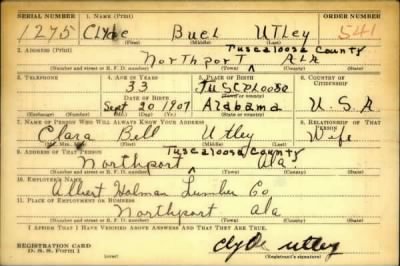 SERIAL NUMBER 1. NAME (Print) ORDER NUMBER
1275 Clyde Buel Utley 541
(First) (Middle) (Last)
2. ADDRESS (Print) Tuscaloosa County
Northport ALA
(Number and street or R. F. D. number) (Town) (County) (State)
3. TELEPHONE 4. AGE IN YEARS 5. PLACE OF BIRTH 6. COUNTRY OF CITIZENSHIP
33 Tuscaloosa
DATE OF BIRTH (Town or county)
Sept 20 1907 Alabama U.S.A
(Exchange) (Number) (Mo.) (Day) (Yr.) (State or country)
7. NAME OF PERSON WHO WILL ALWAYS KNOW YOUR ADDRESS 8. RELATIONSHIP OF THAT PERSON
Clara Bell Utley Wife
(First) (Middle) (Last)
9. ADDRESS OF THAT PERSON Tuscaloosa County
Northport Ala
(Number and street or R. F. D. number) (Town) (County) (State)
10. EMPLOYER'S NAME
Albert Holman Lumber Co
11. PLACE OF EMPLOYMENT OR BUSINESS
Northport Ala
(Number and street or R. F. D. number) (Town) (County) (State)
I AFFIRM THAT I HAVE VERIFIED ABOVE ANSWERS AND THAT THEY ARE TRUE.
REGISTRATION CARD
D. S. S. Form 1 Clyde Utley
(Registrant's signature)